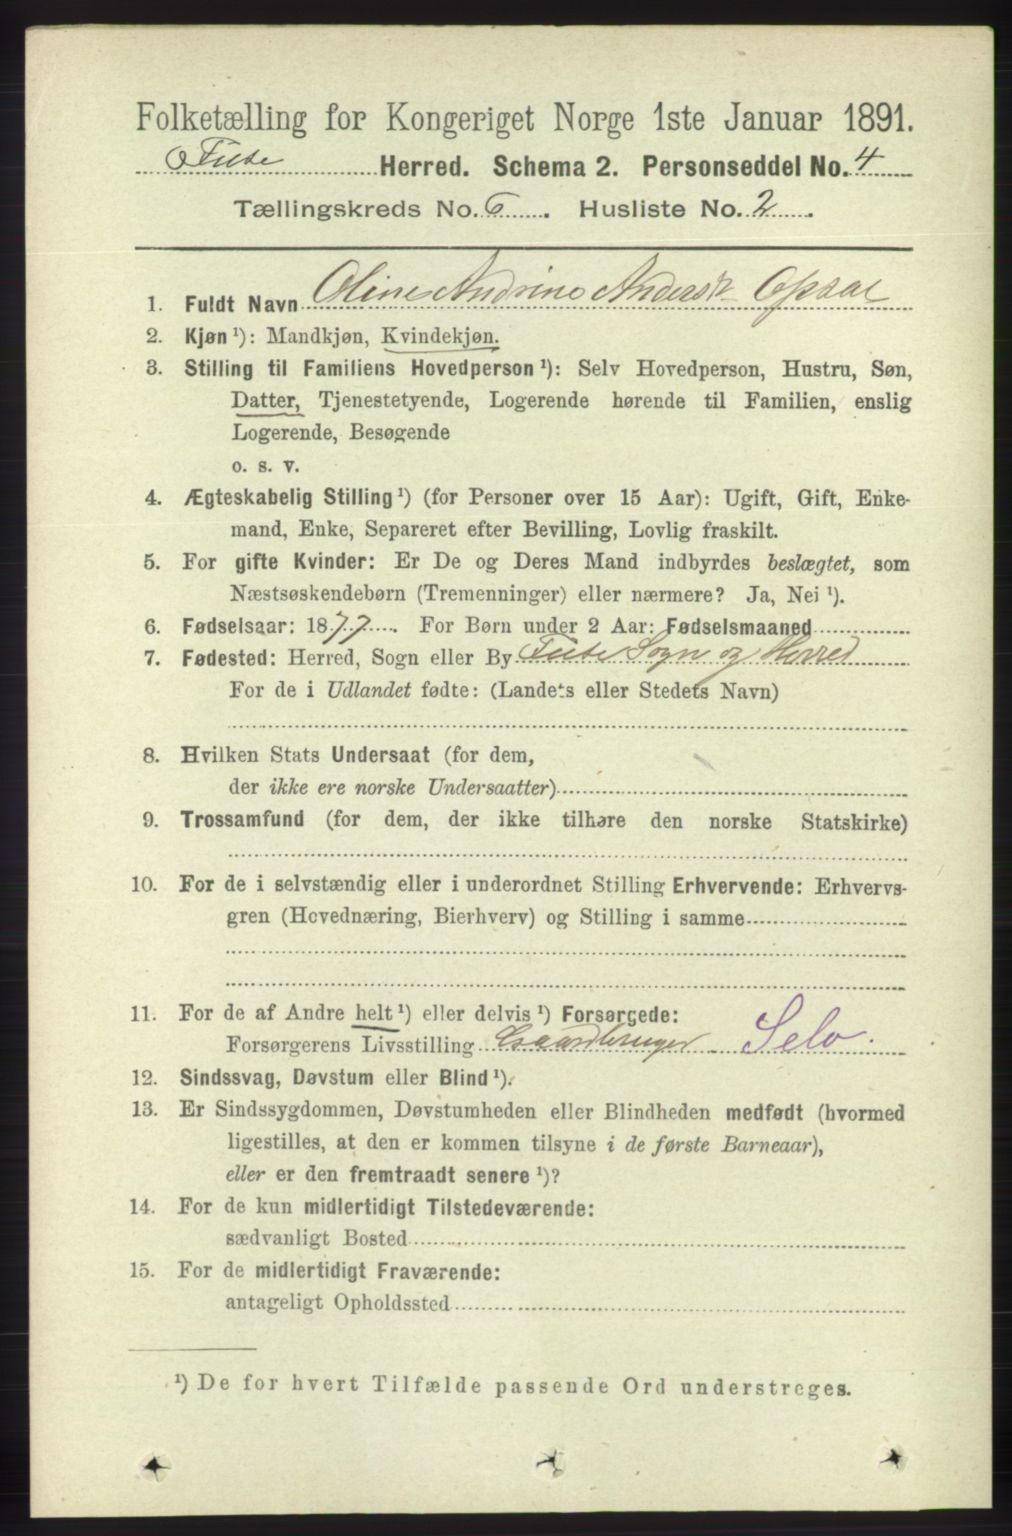 Folketælling for Kongeriget Norge 1ste Januar 1891.
Fuse Herred. Schema 2. Personseddel No. 4
Tællingskreds No. 6. Husliste No. 2.
1. Fuldt Navn Oline Andrine Andersdr Opsal
2. Kjøn ¹): Mandkjøn, Kvindekjøn.
3. Stilling til Familiens Hovedperson ¹): Selv Hovedperson, Hustru, Søn,
Datter, Tjenestetyende, Logerende hørende til Familien, enslig
Logerende, Besøgende
o. s. v.
4. Ægteskabelig Stilling ¹) (for Personer over 15 Aar): Ugift, Gift, Enke-
mand, Enke, Separeret efter Bevilling, Lovlig fraskilt.
5. For gifte Kvinder: Er De og Deres Mand indbyrdes beslægtet, som
Næstsøskendebørn (Tremenninger) eller nærmere? Ja, Nei ¹).
6. Fødselsaar: 1877. For Børn under 2 Aar: Fødselsmaaned
7. Fødested: Herred, Sogn eller By Fuse Sogn og Herred
For de i Udlandet fødte: (Landets eller Stedets Navn)
8. Hvilken Stats Undersaat (for dem,
der ikke ere norske Undersaatter)
9. Trossamfund (for dem, der ikke tilhøre den norske Statskirke)
10. For de i selvstændig eller i underordnet Stilling Erhvervende: Erhvervs-
gren (Hovednæring, Bierhverv) og Stilling i samme
11. For de af Andre helt ¹) eller delvis ¹) Forsørgede:
Forsørgerens Livsstilling Gaardbruger Selv.
12. Sindssvag, Døvstum eller Blind ¹).
13. Er Sindssygdommen, Døvstumheden eller Blindheden medfødt (hvormed
ligestilles, at den er kommen tilsyne i de første Barneaar),
eller er den fremtraadt senere ¹)?
14. For de kun midlertidigt Tilstedeværende:
sædvanligt Bosted
15. For de midlertidigt Fraværende:
antageligt Opholdssted
¹) De for hvert Tilfælde passende Ord understreges.